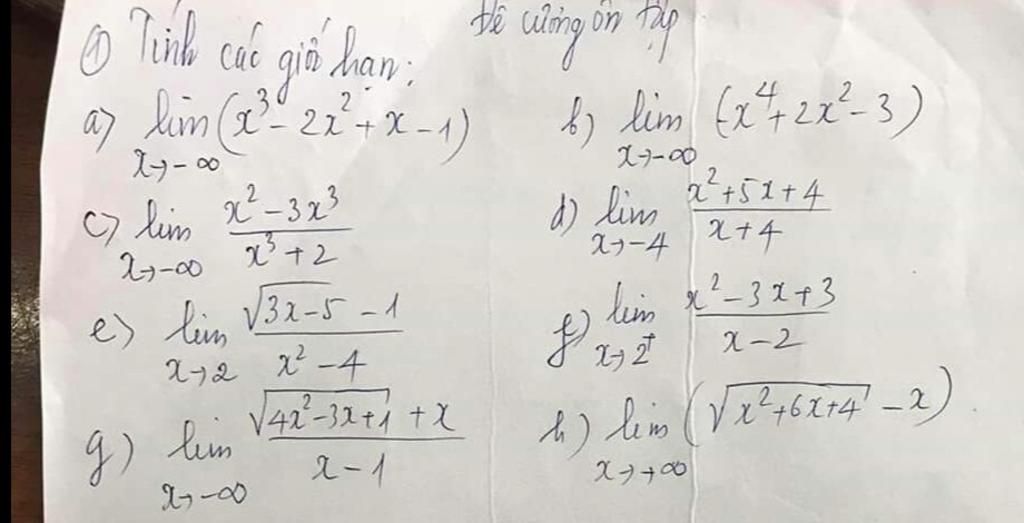 Đề cương ôn tập
① Tính các giới hạn:
a) lim x→-∞ (x³ - 2x² + x - 1)
b) lim x→-∞ (-x⁴ + 2x² - 3)
c) lim x→-∞ (x² - 3x³)/(x³ + 2)
d) lim x→-4 (x² + 5x + 4)/(x + 4)
e) lim x→2 (√(3x-5) - 1)/(x² - 4)
f) lim x→2⁺ (x² - 3x + 3)/(x - 2)
g) lim x→-∞ (√(4x² - 3x + 1) + x)/(x - 1)
h) lim x→+∞ (√(x² + 6x + 4) - x)